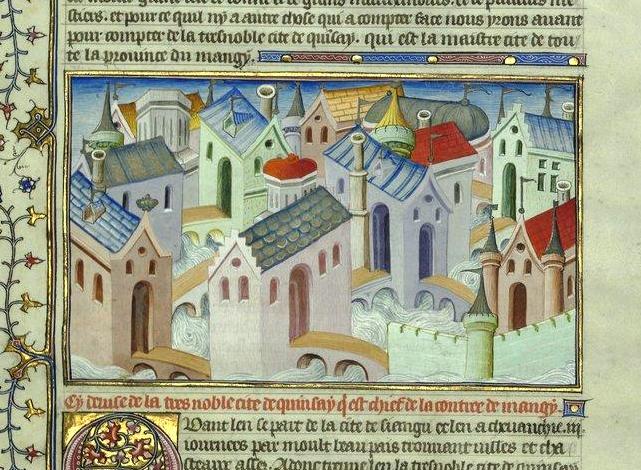 sticiers. et pour ce quil ny a autre chose qui a compter face nous yrons auant
pour compter de la tresnoble cite de quisay. qui est la maistre cite de tou
te la prouince du mangy.
Cy deuise de la tres noble cite de quinsay q est chief de la contree de mangy.
Quant len se part de la cite de siangu et len a cheuauchie .iii.
iournees par moult beau pais trouuant uilles et cha
steaux assez. Adonc treuue len la tresnoble cite de